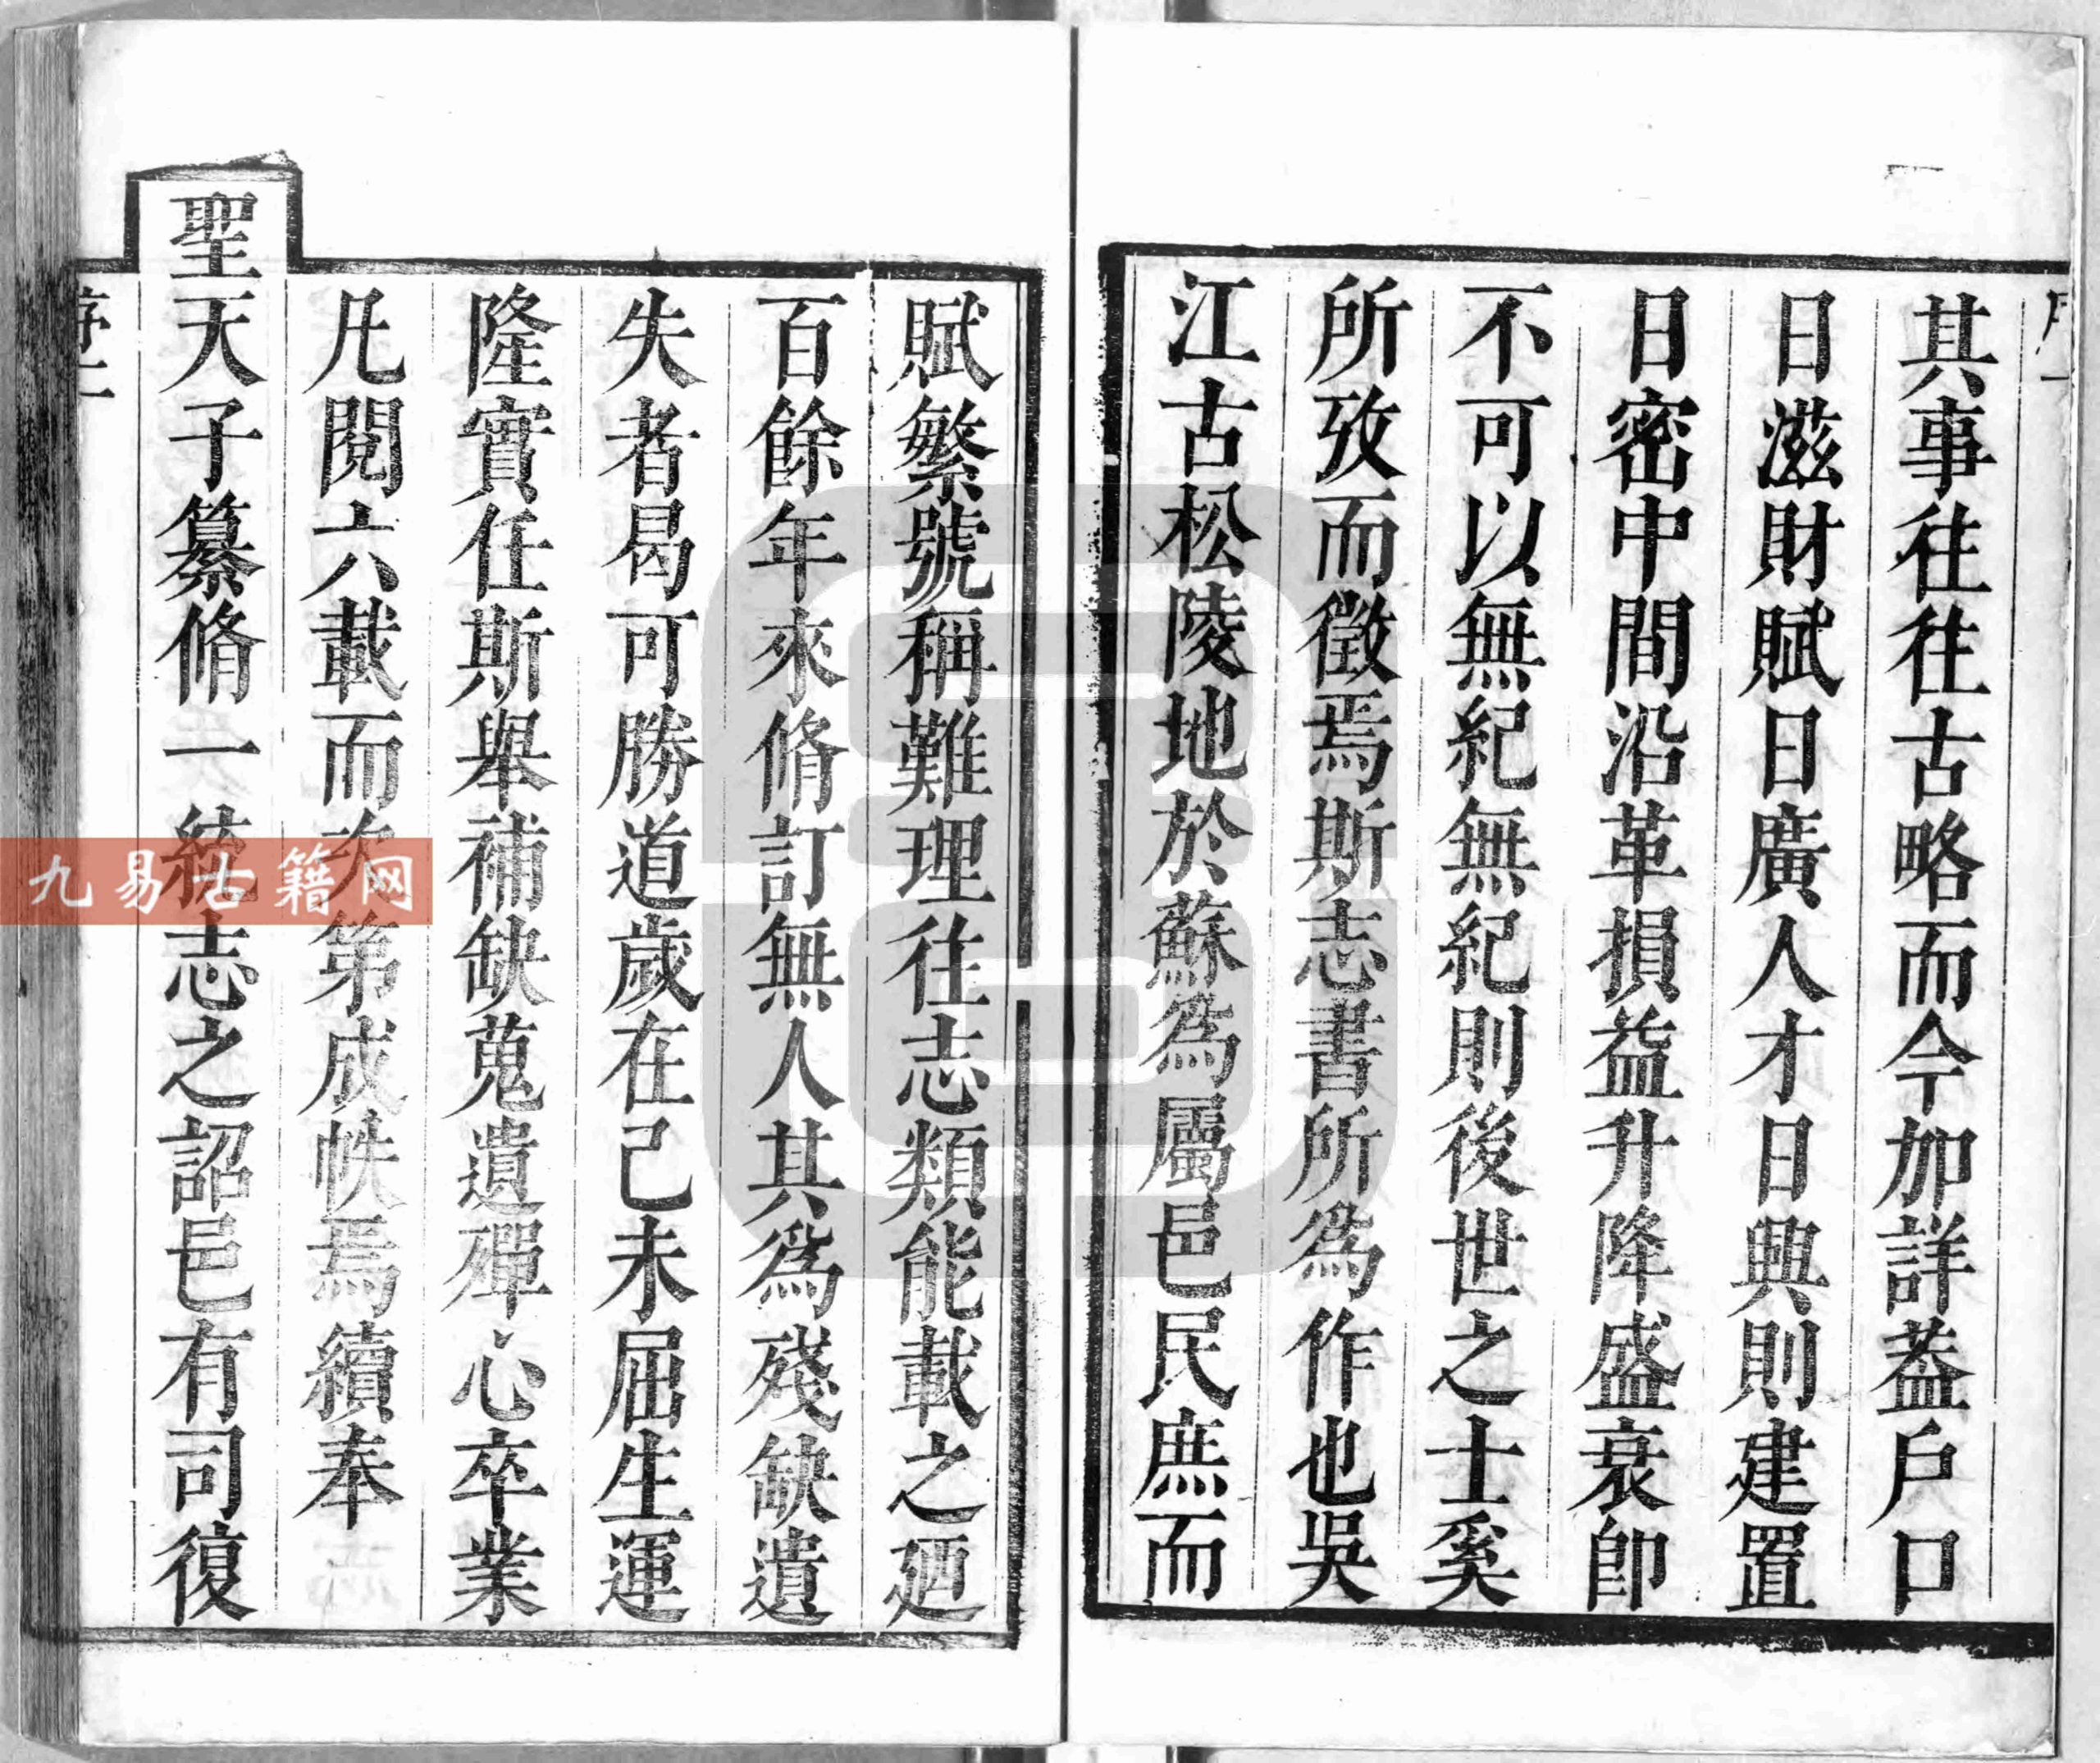 其事往往古略而今加詳葢戶口
日滋財賦日廣人才日興則建置
日密中間沿革損益升降盛衰卽
不可以無紀無紀則後世之士奚
所攷而徵焉斯志書所爲作也吳
江古松陵地於蘇爲屬邑民庶而
賦繁號稱難理往志類能載之廼
百餘年來脩訂無人其爲殘缺遺
失者曷可勝道歲在己未屈生運
隆實任斯舉補缺蒐遺殫心卒業
凡閱六載而次第成帙焉續奉
聖天子纂脩一統志之詔邑有司復
序二
九易古籍网